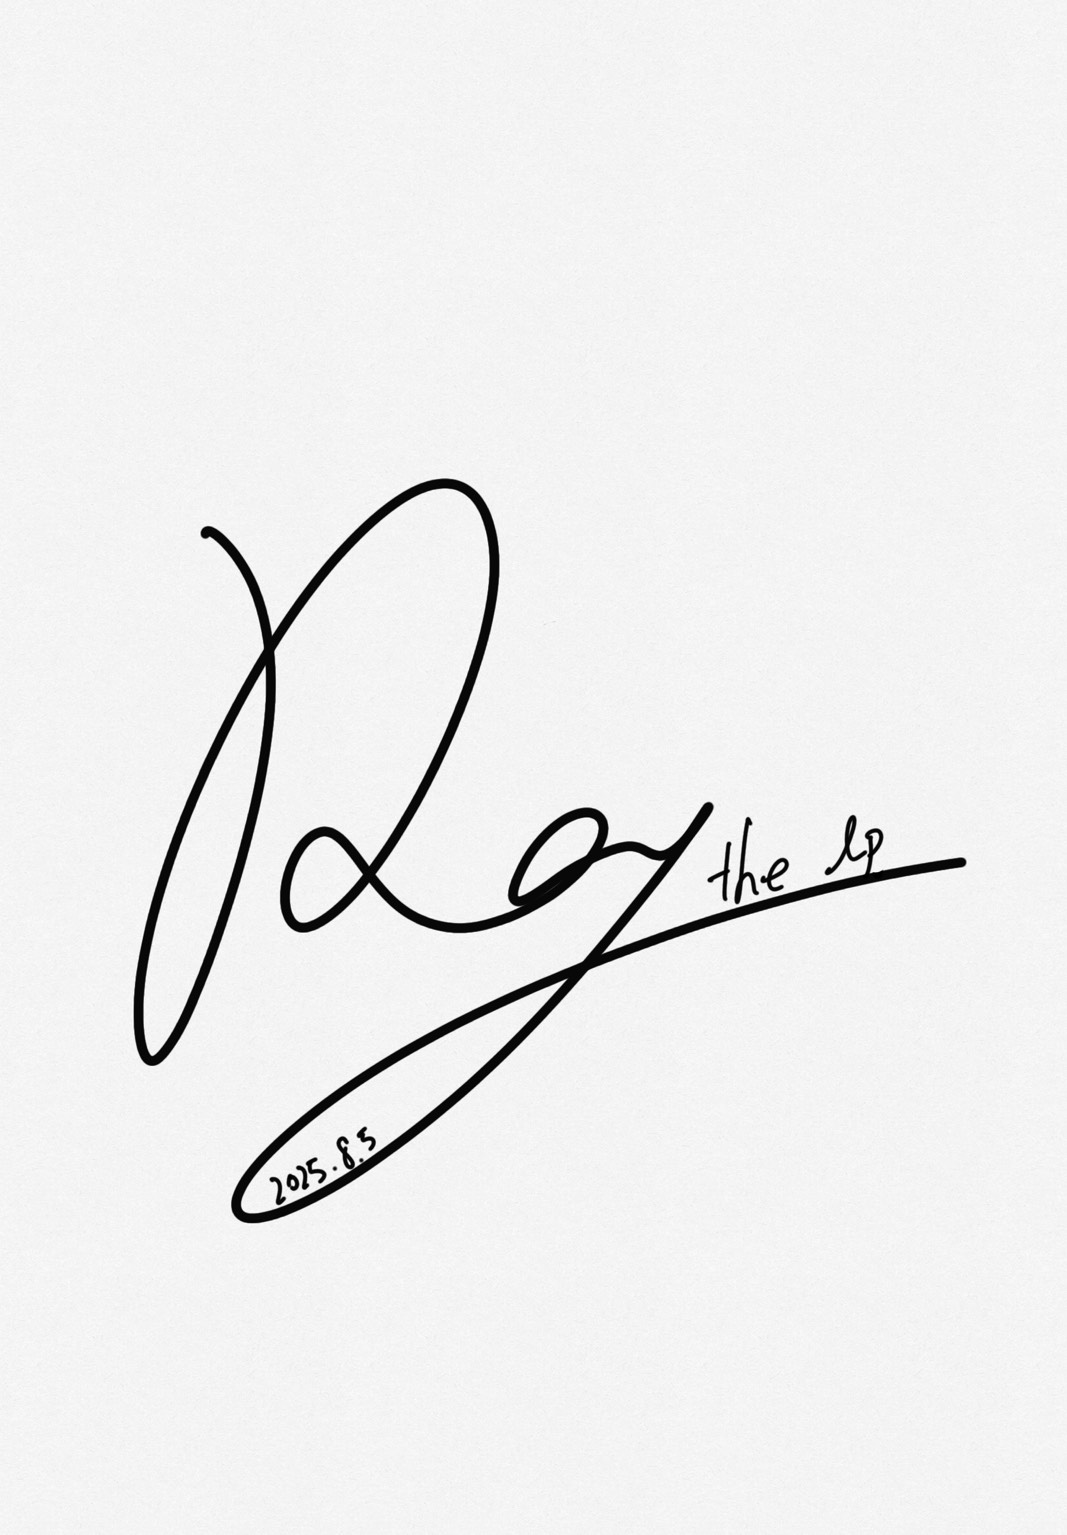 Ray
the lp
2025.8.5